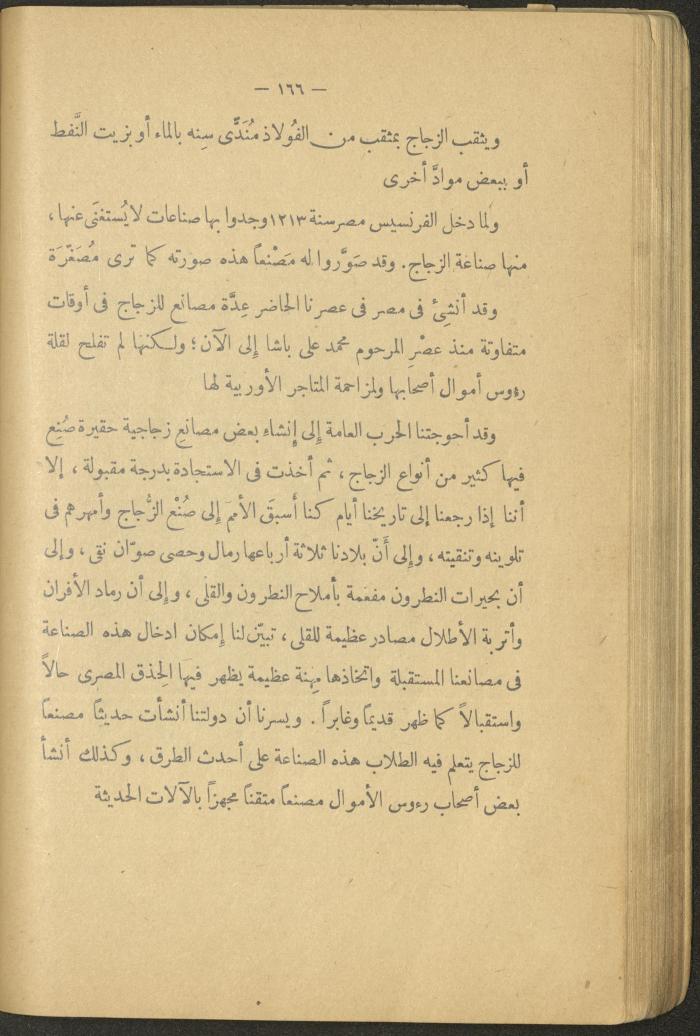 — ١٦٦ —
ويثقب الزجاج بمثقب من الفُولاذ مُنَدًّى سِنه بالماء أو بزيت النَّفط
أو ببعض موادَّ أخرى
ولما دخل الفرنسيس مصر سنة ١٢١٣ وجدوا بها صناعات لا يُستغنَى عنها ،
منها صناعة الزجاج . وقد صَوَّروا له مَصْنعاً هذه صورته كما ترى مُصَغَّرَة
وقد أنشِئَ فى مصر فى عصرنا الحاضر عِدَّة مصانع للزجاج فى أوقات
متفاوتة منذ عصْرِ المرحوم محمد على باشا إِلى الآن ؛ ولكنها لم تفلح لقلة
رءوس أموال أصحابها ولمزاحمة المتاجر الأوربية لها
وقد أحوجتنا الحرب العامة إِلى إِنشاء بعض مصانع زجاجية حقيرة صُنِع
فيها كثير من أنواع الزجاج ، ثم أخذت فى الاستجادة بدرجة مقبولة ، إِلا
أننا إذا رجعنا إلى تاريخنا أيام كنا أَسبقَ الأممِ إِلى صُنْع الزُّجاج وأمهرهم فى
تلوينه وتنقيته ، وإِلى أَنّ بلادنا ثلاثة أرباعها رمال وحصى صوّان نقى ، وإلى
أن بحيرات النطرون مفعمة بأملاح النطرون والقلى ، وإِلى أن رماد الأفران
وأتربة الأطلال مصادر عظيمة للقلى ، تبيّن لنا إِمكان ادخال هذه الصناعة
فى مصانعنا المستقبلة واتخاذها مِهنة عظيمة يظهر فيها الحِذق المصرى حالاً
واستقبالاً كما ظهر قديماً وغابراً . ويسرنا أن دولتنا أنشأت حديثاً مصنعاً
للزجاج يتعلم فيه الطلاب هذه الصناعة على أحدث الطرق ، وكذلك أنشأ
بعض أصحاب رءوس الأموال مصنعاً متقناً مجهزاً بالآلات الحديثة